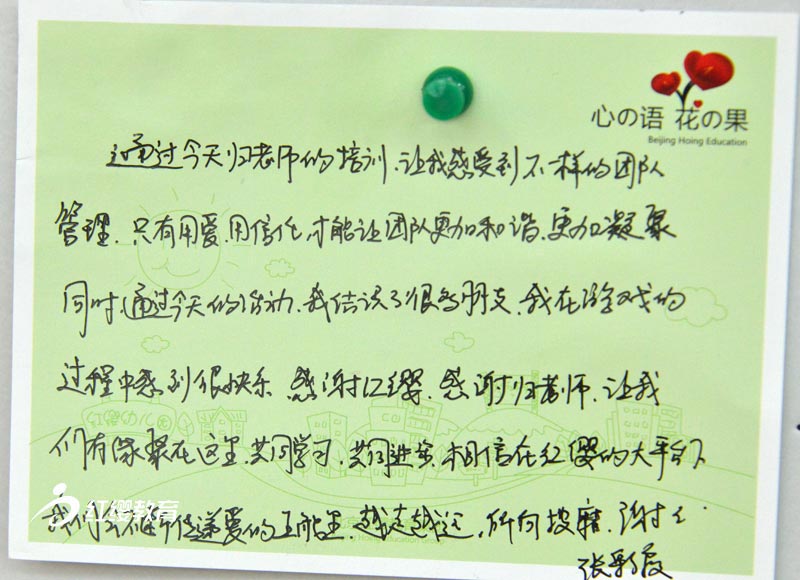 心の语 花の果
Beijing Hoing Education
通过今天归老师的培训，让我感受到不一样的团队
管理，只有用爱，用信任，才能让团队更加和谐，更加凝聚
同时，通过今天的活动，我结识了很多朋友，我在游戏的
过程中感到很快乐 感谢红缨，感谢归老师，让我
们有缘聚在这里，共同学习，共同进步，相信在红缨的大平台下
我们会不断传递爱的正能量，越走越远，所向披靡，谢谢！
张彩霞
红缨幼儿园
红缨教育